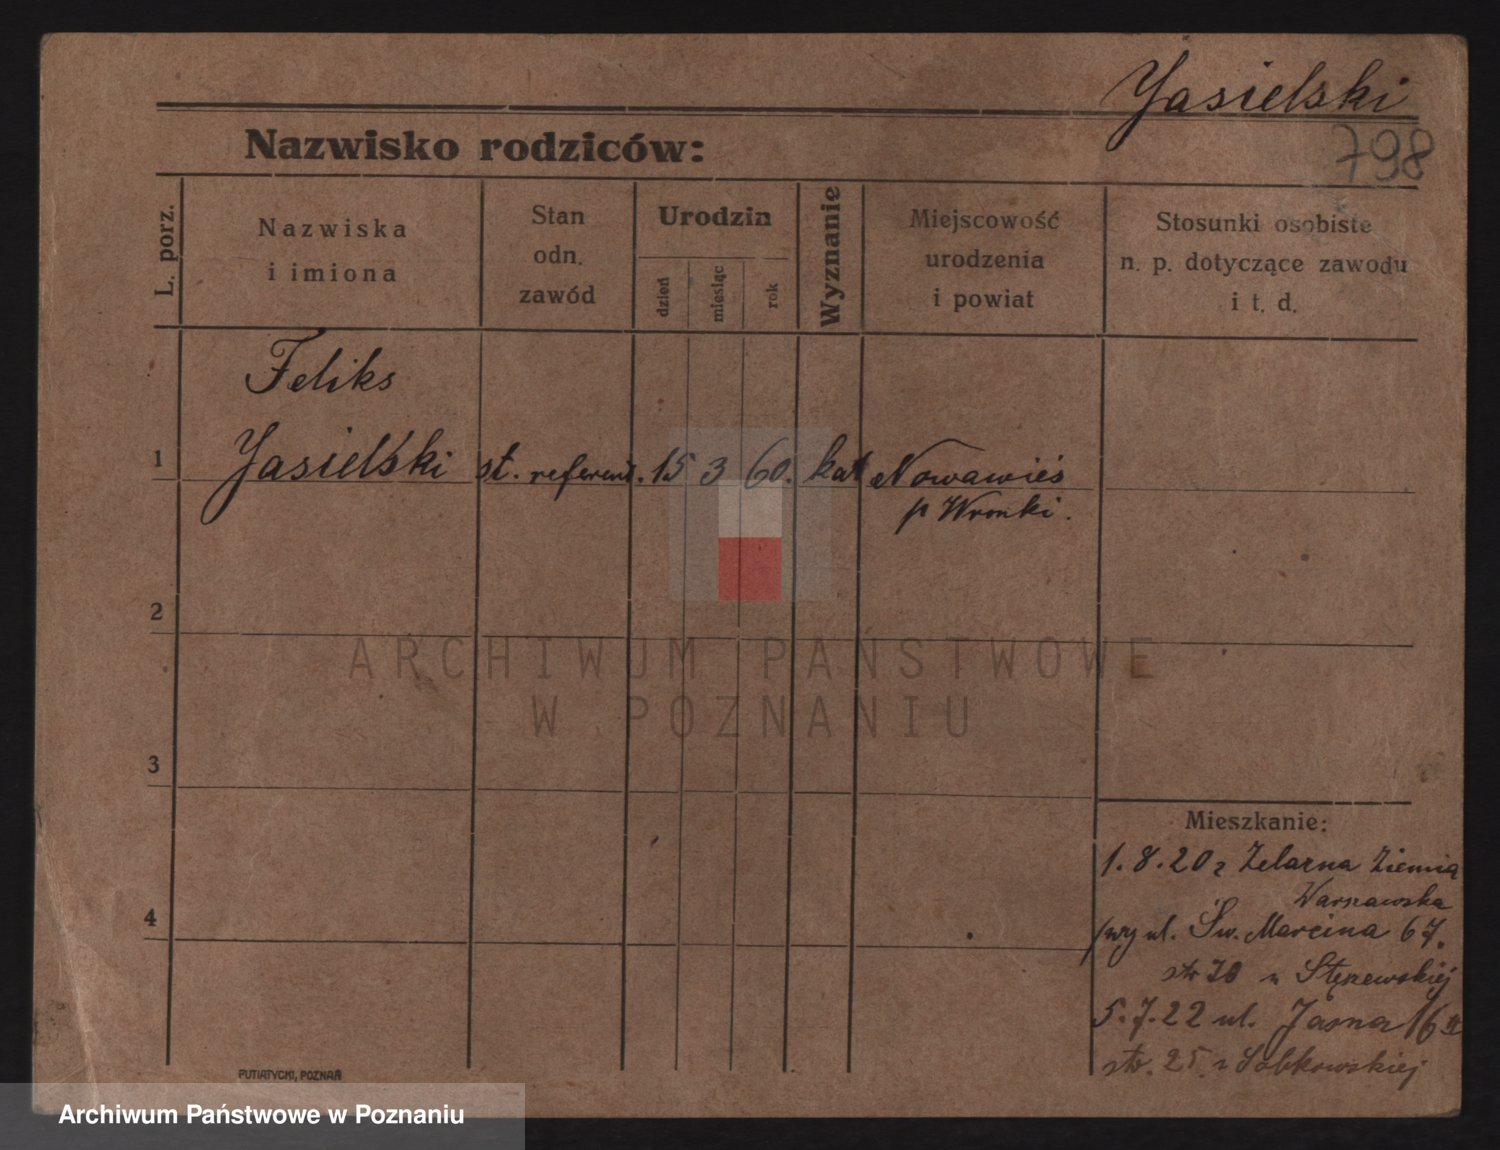 Jasielski
798
Nazwisko rodziców:
L. porz.
Nazwiska
i imiona
Stan
odn.
zawód
Urodzin
dzień
miesiąc
rok
Wyznanie
Miejscowość
urodzenia
i powiat
Stosunki osobiste
n. p. dotyczące zawodu
i t. d.
Feliks
1 Jasielski st. referent. 15 3 60. kat Nowawieś
p Wronki.
2
ARCHIWUM PAŃSTWOWE
W POZNANIU
3
Mieszkanie:
1.8.20 z Żelazna Ziemia
Warszawska
4
przy ul. Św. Marcina 67.
str 70 u Stęszewskiej
5.7.22 ul. Jasna 16 II
str. 25 z Sobkowskiej
PUTIATYCKI, POZNAŃ
Archiwum Państwowe w Poznaniu